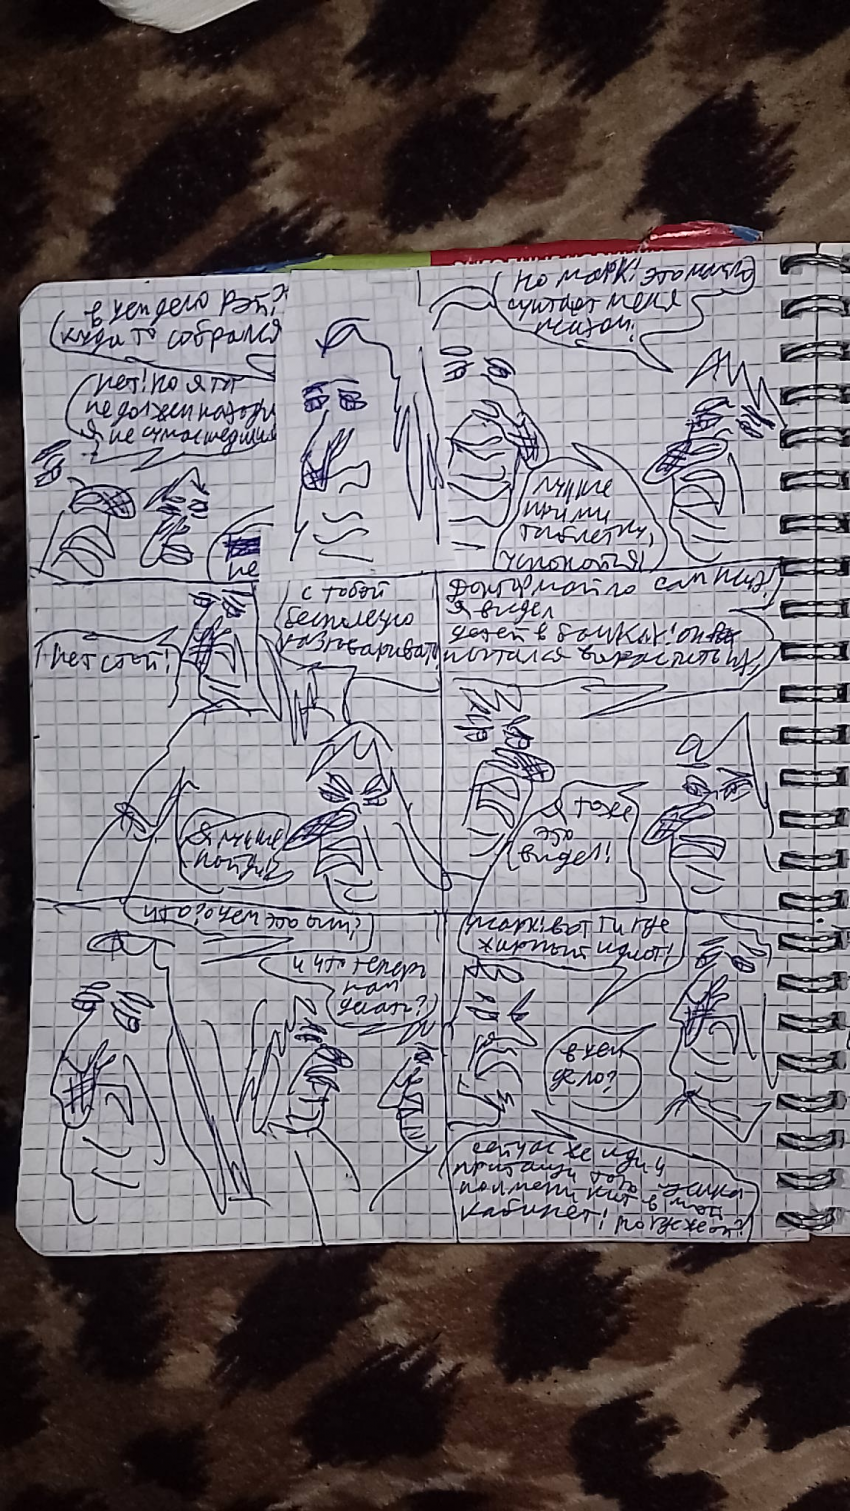 в чём дело Рэй?
куда то собрался
нет! но я тут
не должен
я не сумасшедший
не
но Марк! это
считает меня
психом!
лучше
прими
таблетку,
успокойся!
нет стой!
с тобой
бесполезно
разговаривать
я лучше
пойду
Доктор сам псих!
я видел
детей в банках! он
пытался вырастить их,
я тоже
это
видел!
что? о чём это они?
и что теперь
нам
делать?
Марк! вот ты где
жирный идиот!
в чём
дело?
сейчас же иди и
притащи того
пациента в мой
кабинет!